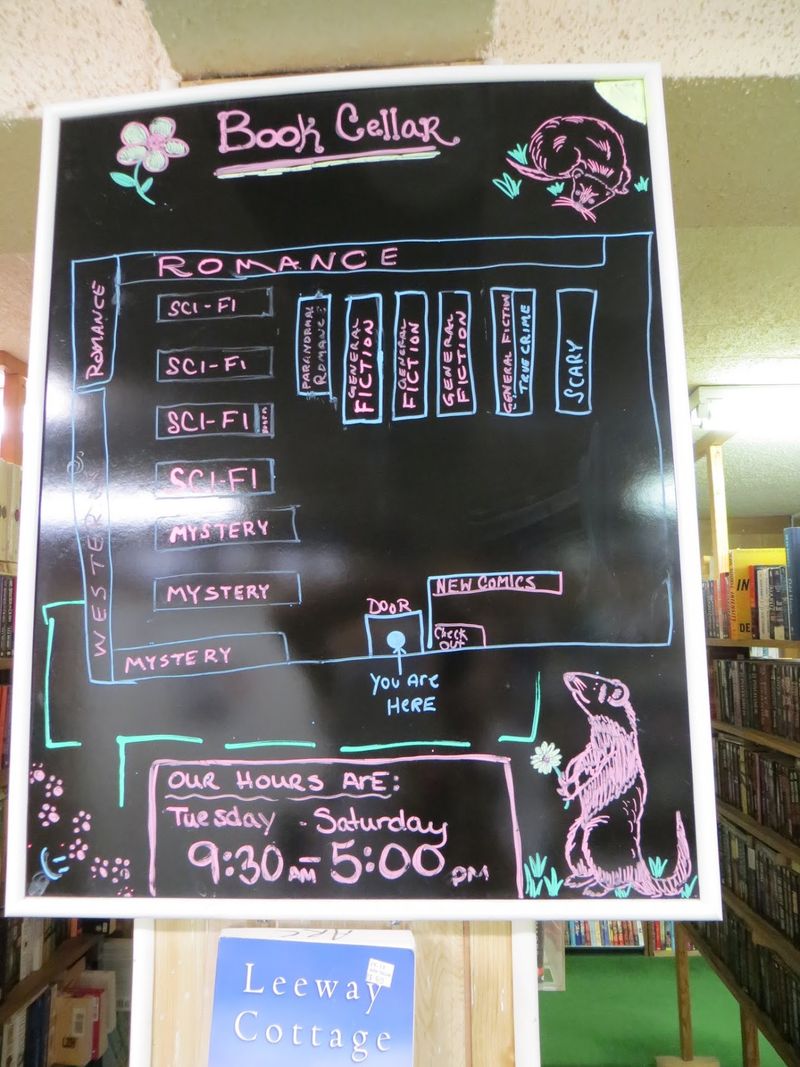 Book Cellar
ROMANCE
ROMANCE
SCI-FI
SCI-FI
SCI-FI
SCI-FI
MYSTERY
MYSTERY
MYSTERY
WESTERN
PARANORMAL
ROMANCE
GENERAL
FICTION
GENERAL
FICTION
GENERAL
FICTION
GENERAL FICTION
TRUE CRIME
SCARY
NEW COMICS
DOOR
Check
Out
You Are
HERE
OUR HOURS ARE:
Tuesday - Saturday
9:30 AM - 5:00 PM
Leeway
Cottage